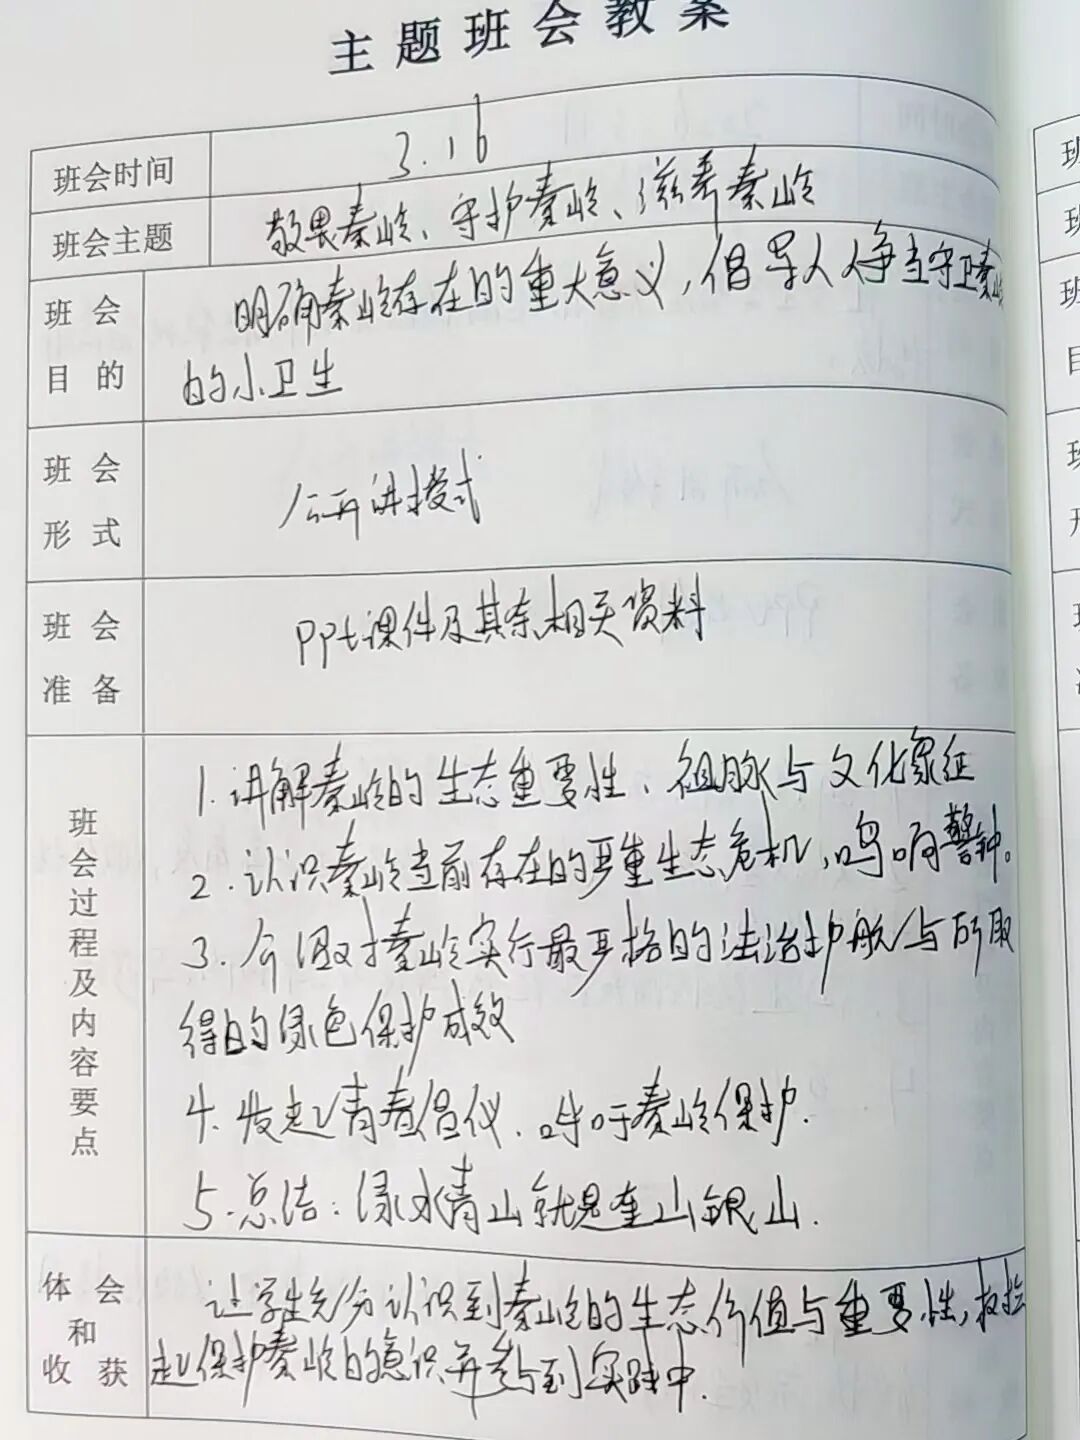 主题班会教案
班会时间 3.16
班会主题 敬畏秦岭、守护秦岭、滋养秦岭
班会目的
明确秦岭存在的重大意义,倡导人人争当守卫秦岭
的小卫生
班会形式
公开讲授式
班会准备
ppt课件及其余相关资料
班会过程及内容要点
1.讲解秦岭的生态重要性、祖脉与文化象征
2.认识秦岭当前存在的严重生态危机,鸣响警钟。
3.介绍对秦岭实行最严格的法治护航与所取
得的绿色保护成效
4.发起青春倡仪.呼吁秦岭保护.
5.总结:绿水青山就是金山银山.
体会和收获
让学生充分认识到秦岭的生态价值与重要性,
起保护秦岭的意识并参与到实践中.